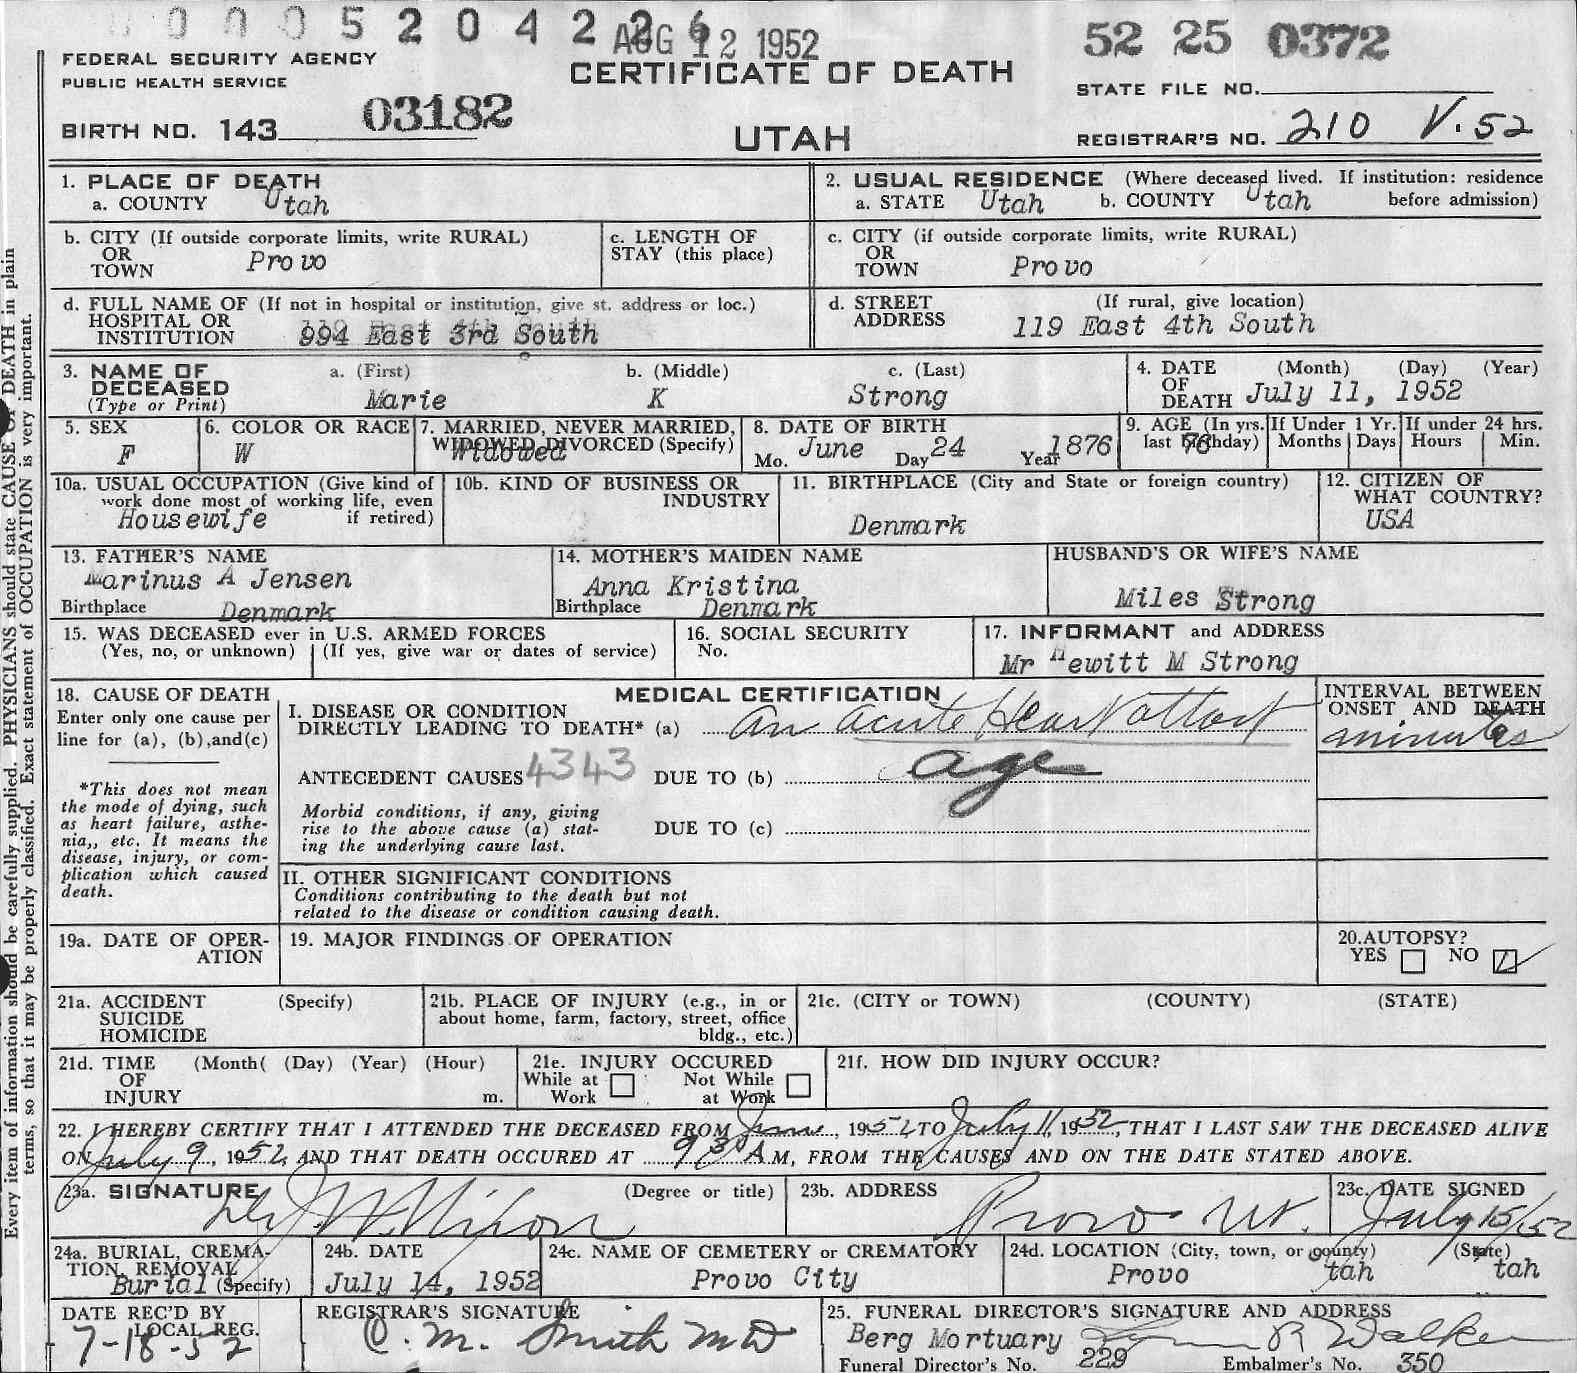 0 0 0 5 2 0 4 2 2 6
AUG 12 1952
52 25 0372
FEDERAL SECURITY AGENCY
PUBLIC HEALTH SERVICE
CERTIFICATE OF DEATH
STATE FILE NO.
BIRTH NO. 143 03182
UTAH
REGISTRAR'S NO. 210 V.52
1. PLACE OF DEATH
a. COUNTY Utah
2. USUAL RESIDENCE (Where deceased lived. If institution: residence
a. STATE Utah b. COUNTY Utah before admission)
b. CITY (If outside corporate limits, write RURAL)
OR
TOWN Provo
c. LENGTH OF
STAY (this place)
c. CITY (if outside corporate limits, write RURAL)
OR
TOWN Provo
d. FULL NAME OF (If not in hospital or institution, give st. address or loc.)
HOSPITAL OR
INSTITUTION 994 East 3rd South
d. STREET (If rural, give location)
ADDRESS 119 East 4th South
3. NAME OF a. (First) b. (Middle) c. (Last)
DECEASED
(Type or Print) Marie K Strong
4. DATE (Month) (Day) (Year)
OF
DEATH July 11, 1952
5. SEX
F
6. COLOR OR RACE
W
7. MARRIED, NEVER MARRIED,
WIDOWED, DIVORCED (Specify)
Widowed
8. DATE OF BIRTH
Mo. June Day 24 Year 1876
9. AGE (In yrs. If Under 1 Yr. If under 24 hrs.
last birthday) 76 Months Days Hours Min.
10a. USUAL OCCUPATION (Give kind of
work done most of working life, even
Housewife if retired)
10b. KIND OF BUSINESS OR
INDUSTRY
11. BIRTHPLACE (City and State or foreign country)
Denmark
12. CITIZEN OF
WHAT COUNTRY?
USA
13. FATHER'S NAME
Marinus A Jensen
Birthplace Denmark
14. MOTHER'S MAIDEN NAME
Anna Kristina
Birthplace Denmark
HUSBAND'S OR WIFE'S NAME
Miles Strong
15. WAS DECEASED ever in U.S. ARMED FORCES
(Yes, no, or unknown) (If yes, give war or dates of service)
16. SOCIAL SECURITY
No.
17. INFORMANT and ADDRESS
Mr Hewitt M Strong
18. CAUSE OF DEATH
Enter only one cause per
line for (a), (b),and(c)
*This does not mean
the mode of dying, such
as heart failure, asthe-
nia,, etc. It means the
disease, injury, or com-
plication which caused
death.
MEDICAL CERTIFICATION
I. DISEASE OR CONDITION
DIRECTLY LEADING TO DEATH* (a) An acute Heart attack
ANTECEDENT CAUSES 4343 DUE TO (b) age
Morbid conditions, if any, giving
rise to the above cause (a) stat-
ing the underlying cause last.
DUE TO (c)
INTERVAL BETWEEN
ONSET AND DEATH
minutes
II. OTHER SIGNIFICANT CONDITIONS
Conditions contributing to the death but not
related to the disease or condition causing death.
19a. DATE OF OPER-
ATION
19. MAJOR FINDINGS OF OPERATION
20.AUTOPSY?
YES NO
21a. ACCIDENT (Specify)
SUICIDE
HOMICIDE
21b. PLACE OF INJURY (e.g., in or
about home, farm, factory, street, office
bldg., etc.)
21c. (CITY or TOWN) (COUNTY) (STATE)
21d. TIME (Month( (Day) (Year) (Hour)
OF
INJURY m.
21e. INJURY OCCURED
While at Not While
Work at Work
21f. HOW DID INJURY OCCUR?
22. I HEREBY CERTIFY THAT I ATTENDED THE DECEASED FROM June, 1952 TO July 11, 1952, THAT I LAST SAW THE DECEASED ALIVE
ON July 9, 1952, AND THAT DEATH OCCURED AT 9:30 A.M, FROM THE CAUSES AND ON THE DATE STATED ABOVE.
23a. SIGNATURE (Degree or title)
J. W. Nixon
23b. ADDRESS
Provo Ut.
23c. DATE SIGNED
July 15/52
24a. BURIAL, CREMA-
TION, REMOVAL
Burial (Specify)
24b. DATE
July 14, 1952
24c. NAME OF CEMETERY or CREMATORY
Provo City
24d. LOCATION (City, town, or county) (State)
Provo Utah Utah
DATE REC'D BY
LOCAL REG.
7-18-52
REGISTRAR'S SIGNATURE
C. M. Smith MD
25. FUNERAL DIRECTOR'S SIGNATURE AND ADDRESS
Berg Mortuary R Walker
Funeral Director's No. 229 Embalmer's No. 350
Every item of information should be carefully supplied. PHYSICIANS should state CAUSE OF DEATH in plain
terms, so that it may be properly classified. Exact statement of OCCUPATION is very important.